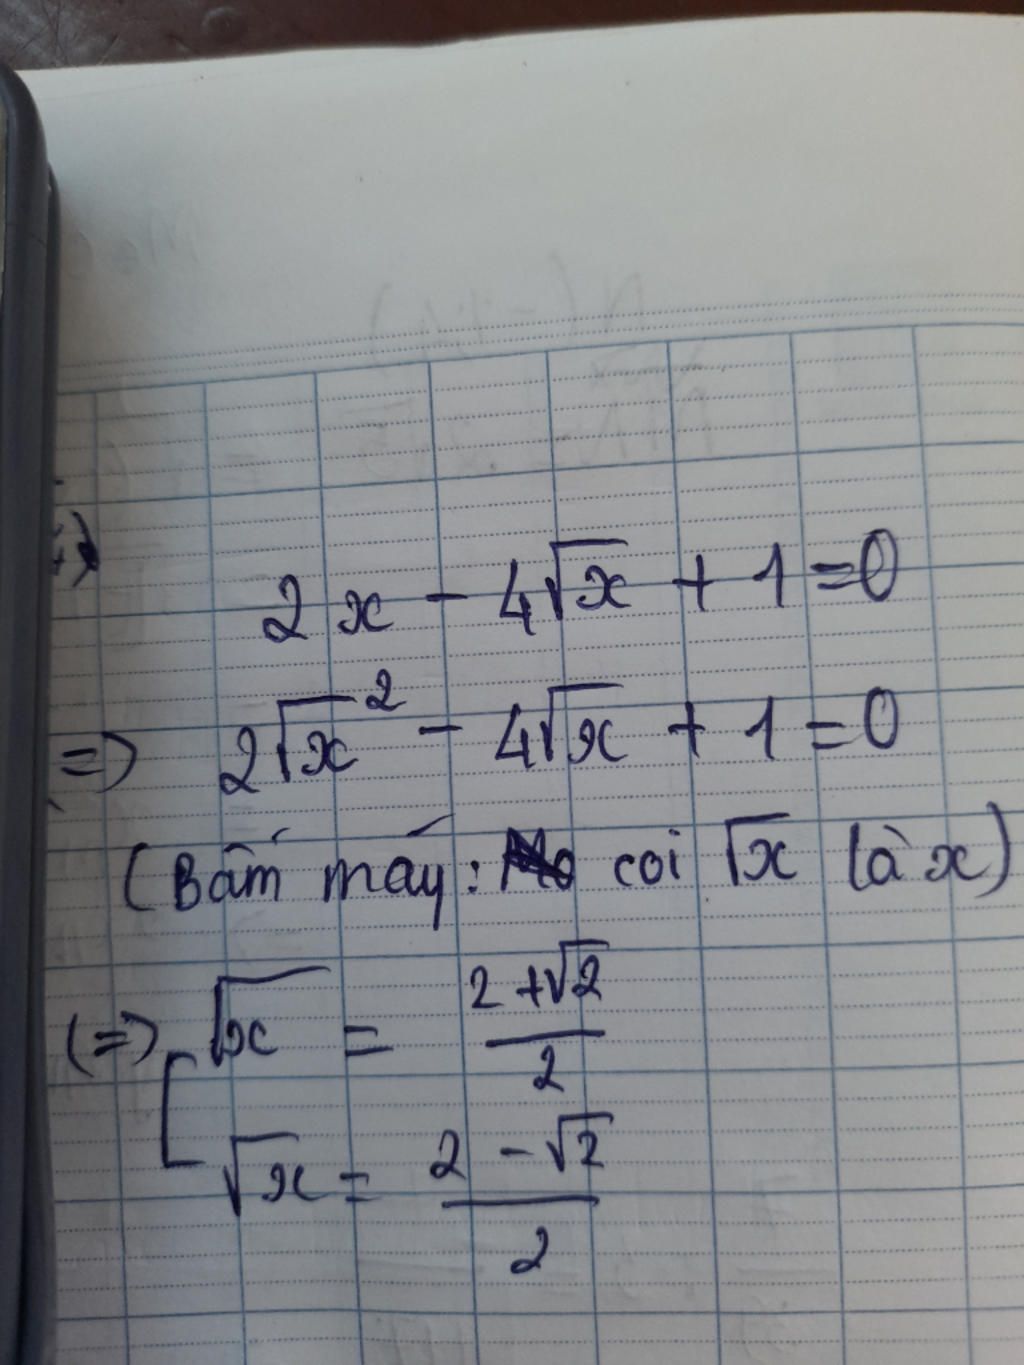 2x - 4√x + 1 = 0
⇒ 2√x² - 4√x + 1 = 0
(Bấm máy: coi √x là x)
(⇒) [ √x = (2 + √2)/2
√x = (2 - √2)/2